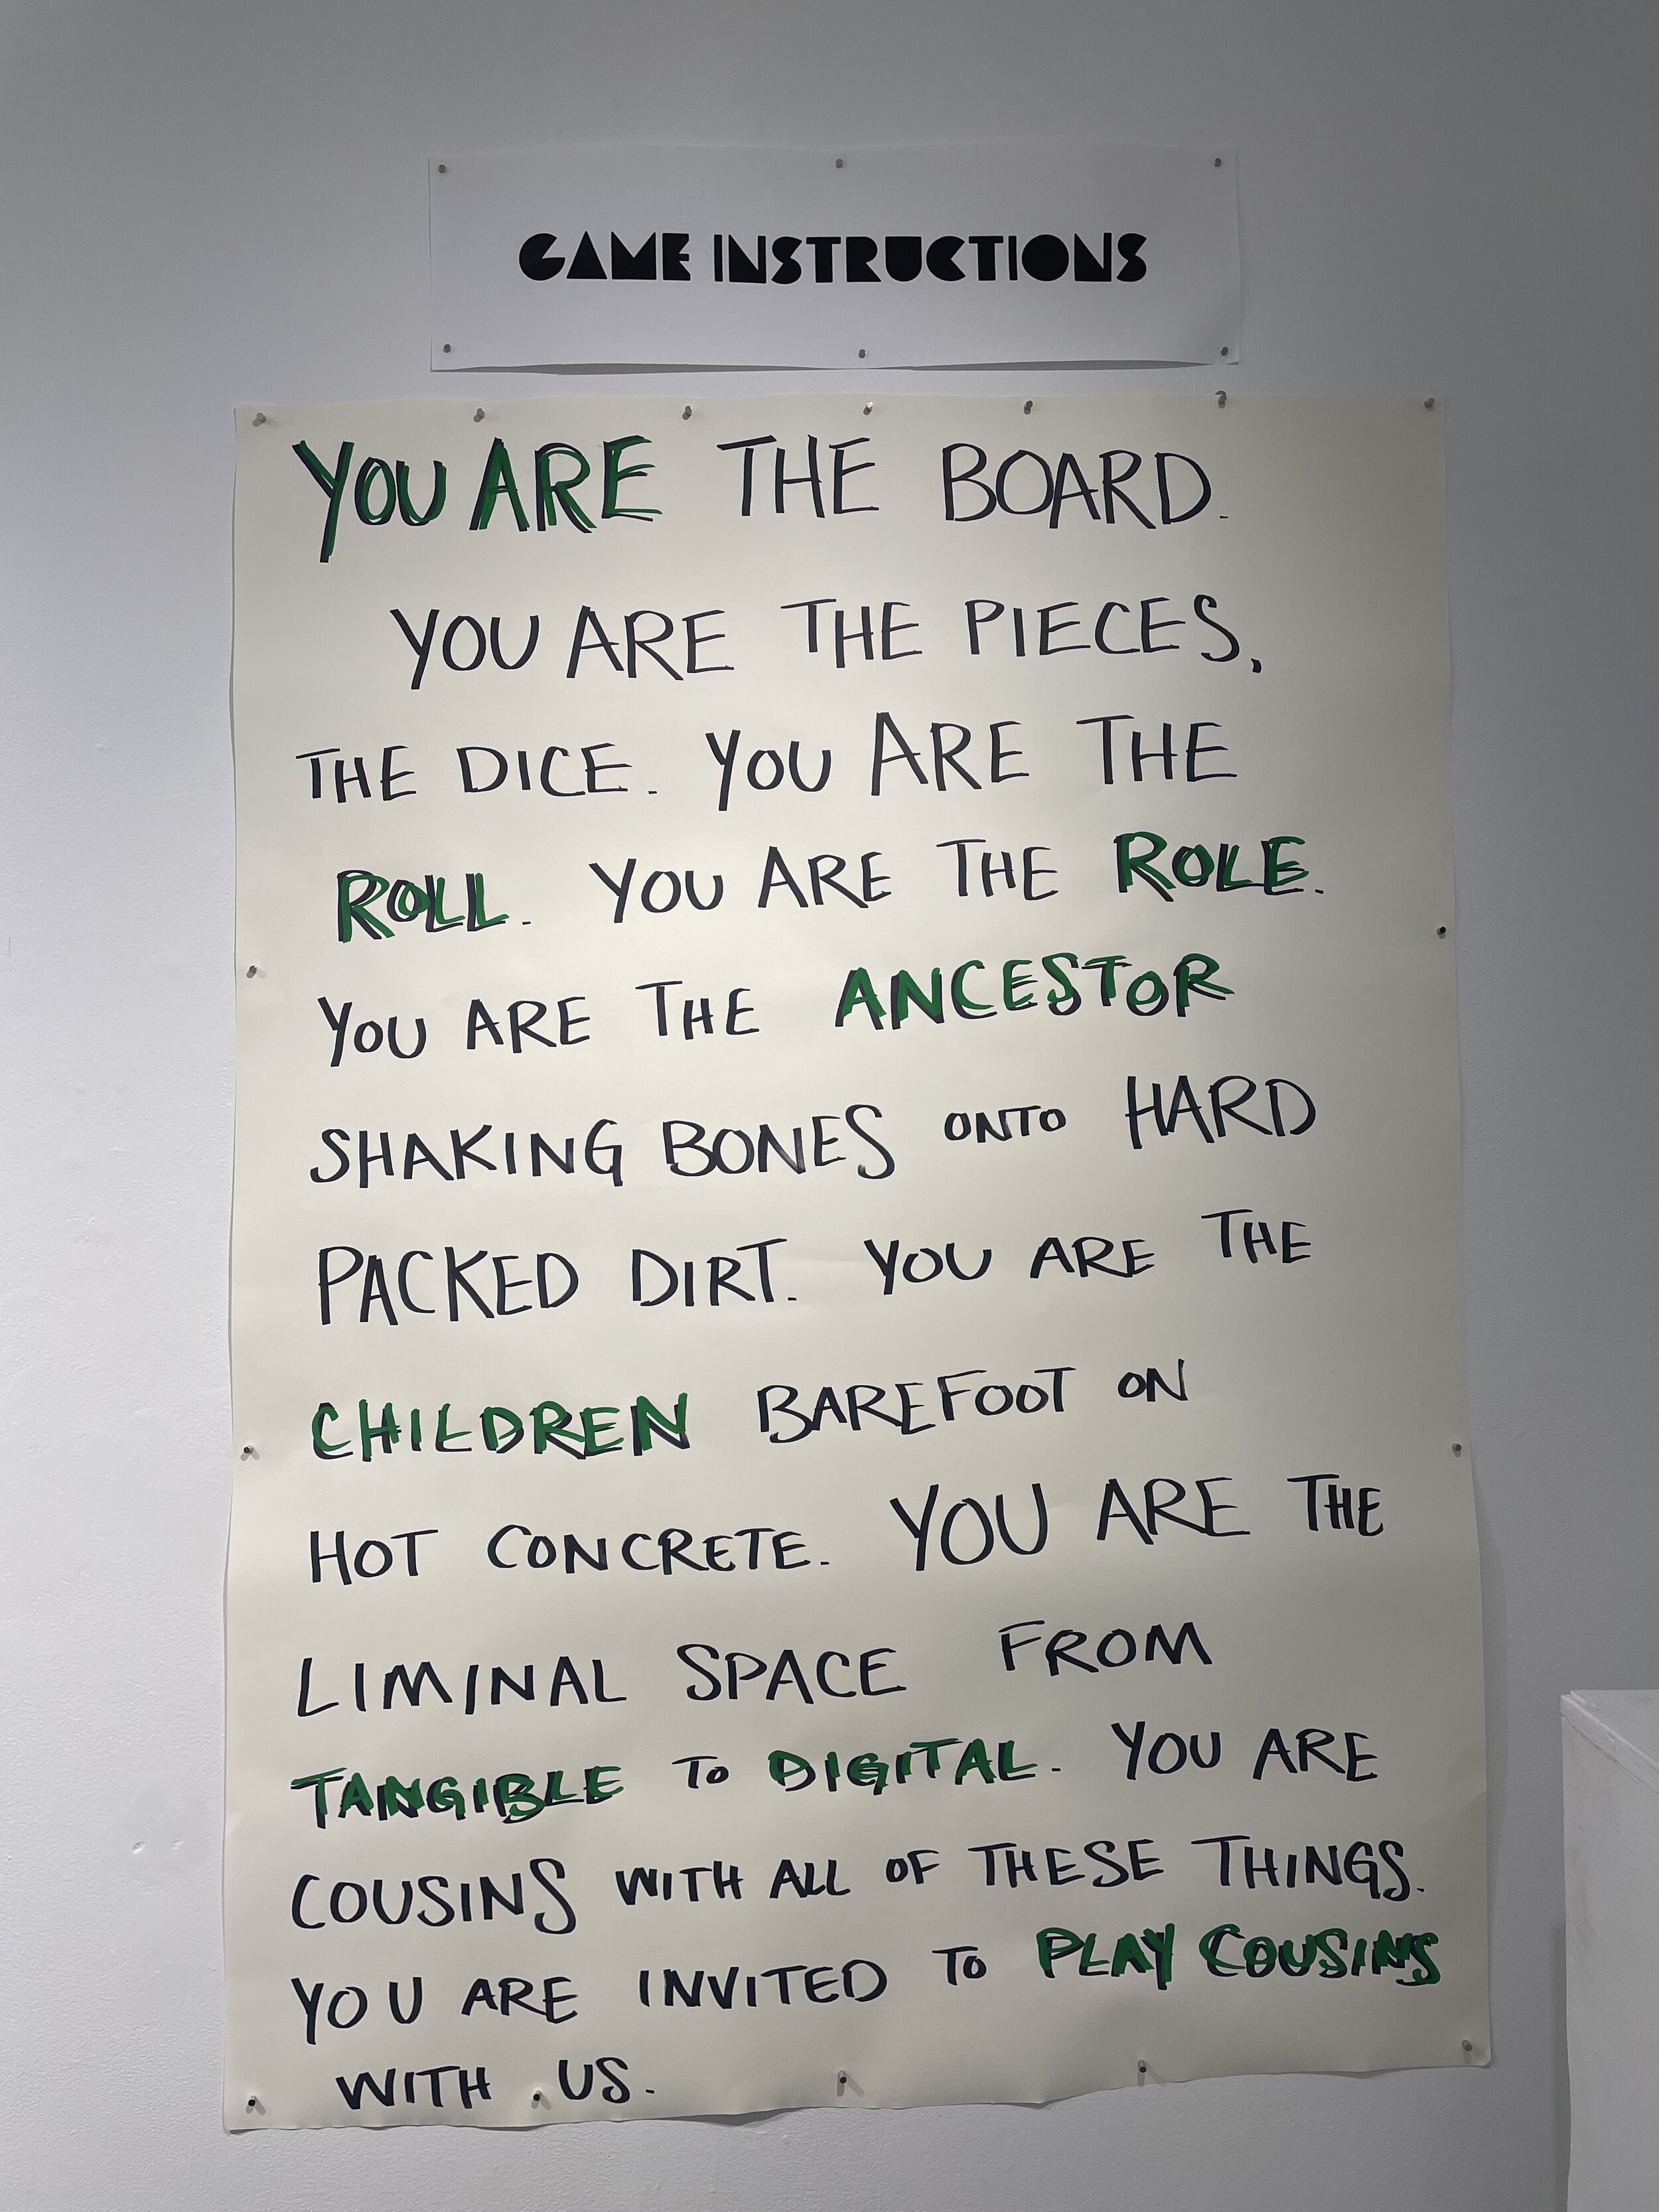 GAME INSTRUCTIONS
YOU ARE THE BOARD.
YOU ARE THE PIECES,
THE DICE. YOU ARE THE
ROLL. YOU ARE THE ROLE.
YOU ARE THE ANCESTOR
SHAKING BONES ONTO HARD
PACKED DIRT. YOU ARE THE
CHILDREN BAREFOOT ON
HOT CONCRETE. YOU ARE THE
LIMINAL SPACE FROM
TANGIBLE TO DIGITAL. YOU ARE
COUSINS WITH ALL OF THESE THINGS.
YOU ARE INVITED TO PLAY COUSINS
WITH US.